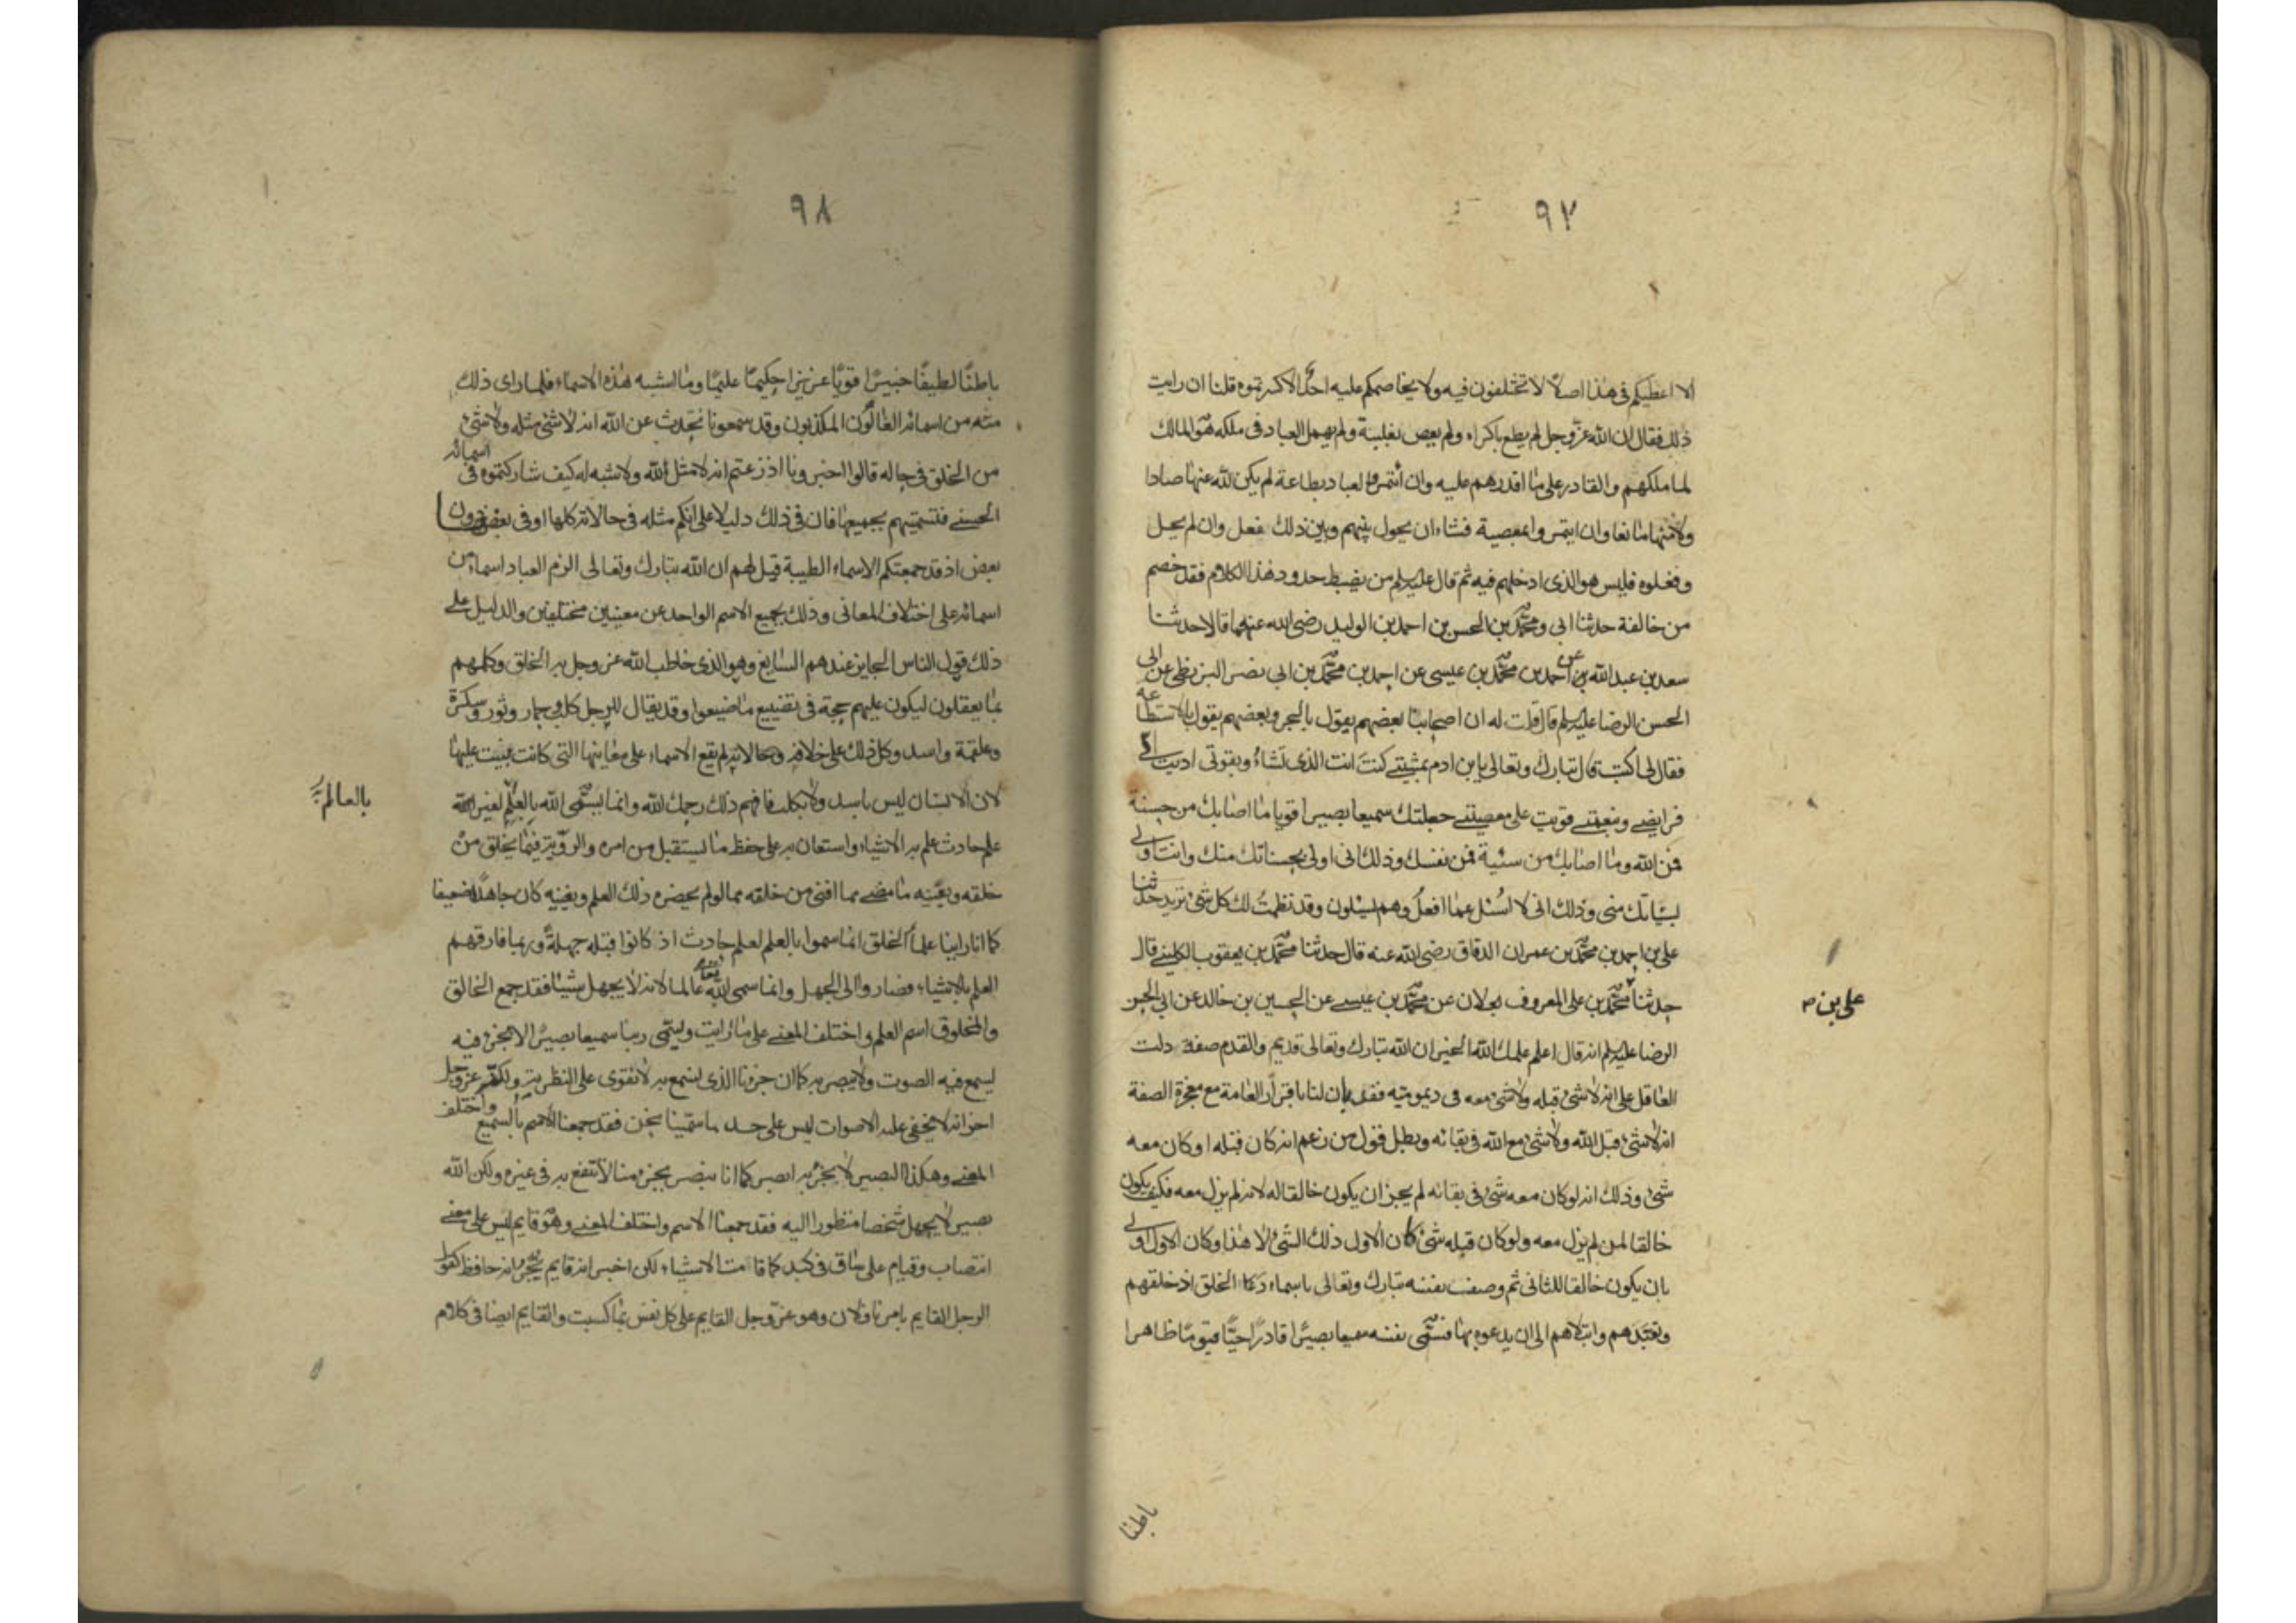 ٩٧
الا اعطيكم فى هذا اصلا لا تختلفون فيه ولا يخاصمكم عليه احد الا كسرتموه قلنا ان رايت
ذلك فقال ان الله عز وجل لم يطع باكراه ولم يعص بغلبة ولم يهمل العباد فى ملكه هو المالك
لما ملكهم والقادر على ما اقدرهم عليه وان ائتمر العباد بطاعة لم يكن لله عنها صادا
ولا منها مانعا وان ايتمروا بمعصية فشاء ان يحول بينهم وبين ذلك فعل وان لم يحل
وفعلوه فليس هو الذى ادخلهم فيه ثم قال عليه السلم من يضبط حدود هذا الكلام فقد خصم
من خالفه حدثنا ابى ومحمد بن الحسن بن احمد بن الوليد رضى الله عنهما قالا حدثنا
سعد بن عبد الله عن احمد بن محمد بن عيسى عن احمد بن محمد بن ابى نصر البزنطى عن ابى
الحسن الرضا عليه السلم قال قلت له ان اصحابنا بعضهم يقول بالجبر وبعضهم يقول بالاستطاعة
فقال لى اكتب قال تبارك وتعالى يا بن ادم بمشيتى كنت انت الذى تشاء وبقوتى اديت الى
فرايضى وبنعمتى قويت على معصيتى جعلتك سميعا بصيرا قويا ما اصابك من حسنة
فمن الله وما اصابك من سيئة فمن نفسك وذلك انى اولى بحسناتك منك وانت اولى
بسياتك منى وذلك انى لا اسئل عما افعل وهم يسئلون وقد نظمت لك كل شئ تريد حدثنا
على بن احمد بن محمد بن عمران الدقاق رضى الله عنه قال حدثنا محمد بن يعقوب الكلينى قال
حدثنا محمد بن على المعروف بعلان عن محمد بن عيسى عن الحسين بن خالد عن ابى الحسن
على بن م
الرضا عليه السلم انه قال اعلم علمك الله الخير ان الله تبارك وتعالى قديم والقدم صفة دلت
العاقل على انه لا شئ قبله ولا شئ معه فى ديموميته فقد بان لنا باقرار العامة مع معجزة الصفة
انه لا شئ قبل الله ولا شئ مع الله فى بقائه وبطل قول من زعم انه كان قبله او كان معه
شئ وذلك انه لو كان معه شئ فى بقائه لم يجز ان يكون خالقا له لانه لم يزل معه فكيف يكون
خالقا لمن لم يزل معه ولو كان قبله شئ كان الاول ذلك الشئ لا هذا وكان الاول اولى
بان يكون خالقا للثانى ثم وصف نفسه تبارك وتعالى باسماء دعا الخلق اذ خلقهم
وتعبدهم وابتلاهم الى ان يدعوه بها فسمى نفسه سميعا بصيرا قادرا حيا قيوما ظاهرا
باطنا
٩٨
باطنا لطيفا خبيرا قويا عزيزا حكيما عليما وما اشبه هذه الاسماء فلما راى ذلك
من اسمائه الغالون المكذبون وقد سمعونا نحدث عن الله انه لا شئ مثله ولا شئ
من الخلق فى حاله قالوا اخبرونا اذ زعمتم انه لا مثل لله ولا شبه له كيف شاركتموه فى اسمائه
الحسنى فتسميتهم بجميعها فان فى ذلك دليلا على انكم مثله فى حالاته كلها او فى بعضها دون
بعض اذ قد جمعتكم الاسماء الطيبة قيل لهم ان الله تبارك وتعالى الزم العباد اسماء من
اسمائه على اختلاف المعانى وذلك يجمع الاسم الواحد عن معنيين مختلفين والدليل على
ذلك قول الناس الجايز عندهم السايغ وهو الذى خاطب الله عز وجل به الخلق وكلمهم
بما يعقلون ليكون عليهم حجة فى تضييع ما ضيعوا وقد يقال للرجل كلب وحمار وثور وسكرة
وعلقمة واسد وكل ذلك على خلافه وحالاته لم يقع الاسماء على معانيها التى كانت بنيت عليها
لان الانسان ليس باسد ولا بكلب فافهم ذلك رحمك الله وانما يسمى الله بالعلم لغير
بالعالم
علم حادث علم به الاشياء واستعان به على حفظ ما يستقبل من امره والروية فيما يخلق من
خلقه وبعينه ما مضى مما افنى من خلقه مما لو لم يحضره ذلك العلم وبغيبه كان جاهلا ضعيفا
كما انا راينا علماء الخلق انما سموا بالعلم لعلم حادث اذ كانوا قبله جهلة وربما فارقهم
العلم بالاشياء فصاروا الى الجهل وانما سمى الله تعالى عالما لانه لا يجهل شيئا فقد جمع الخالق
والمخلوق اسم العلم واختلف المعنى على ما رايت وليسمى ربنا سميعا بصيرا لا بجزء فيه
يسمع فيه الصوت ولا يبصر به كما ان جزءنا الذى نسمع به لا نقوى على النظر به ولكنه عز وجل
اخبر انه لا يخفى عليه الاصوات ليس على حد ما سمينا نحن فقد جمعنا الاسم بالسميع واختلف
المعنى وهكذا البصير لا بجزء به ابصر كما انا نبصر بجزء منا لا ننتفع به فى غيره ولكن الله
بصير لا يجهل شخصا منظورا اليه فقد جمعنا الاسم واختلف المعنى وهو قايم ليس على معنى
انتصاب وقيام على ساق فى كبد كما قامت الاشياء لكن اخبر انه قايم يخبر انه حافظ كقول
الرجل القايم بامرنا فلان وهو عز وجل القايم على كل نفس بما كسبت والقايم ايضا فى كلام